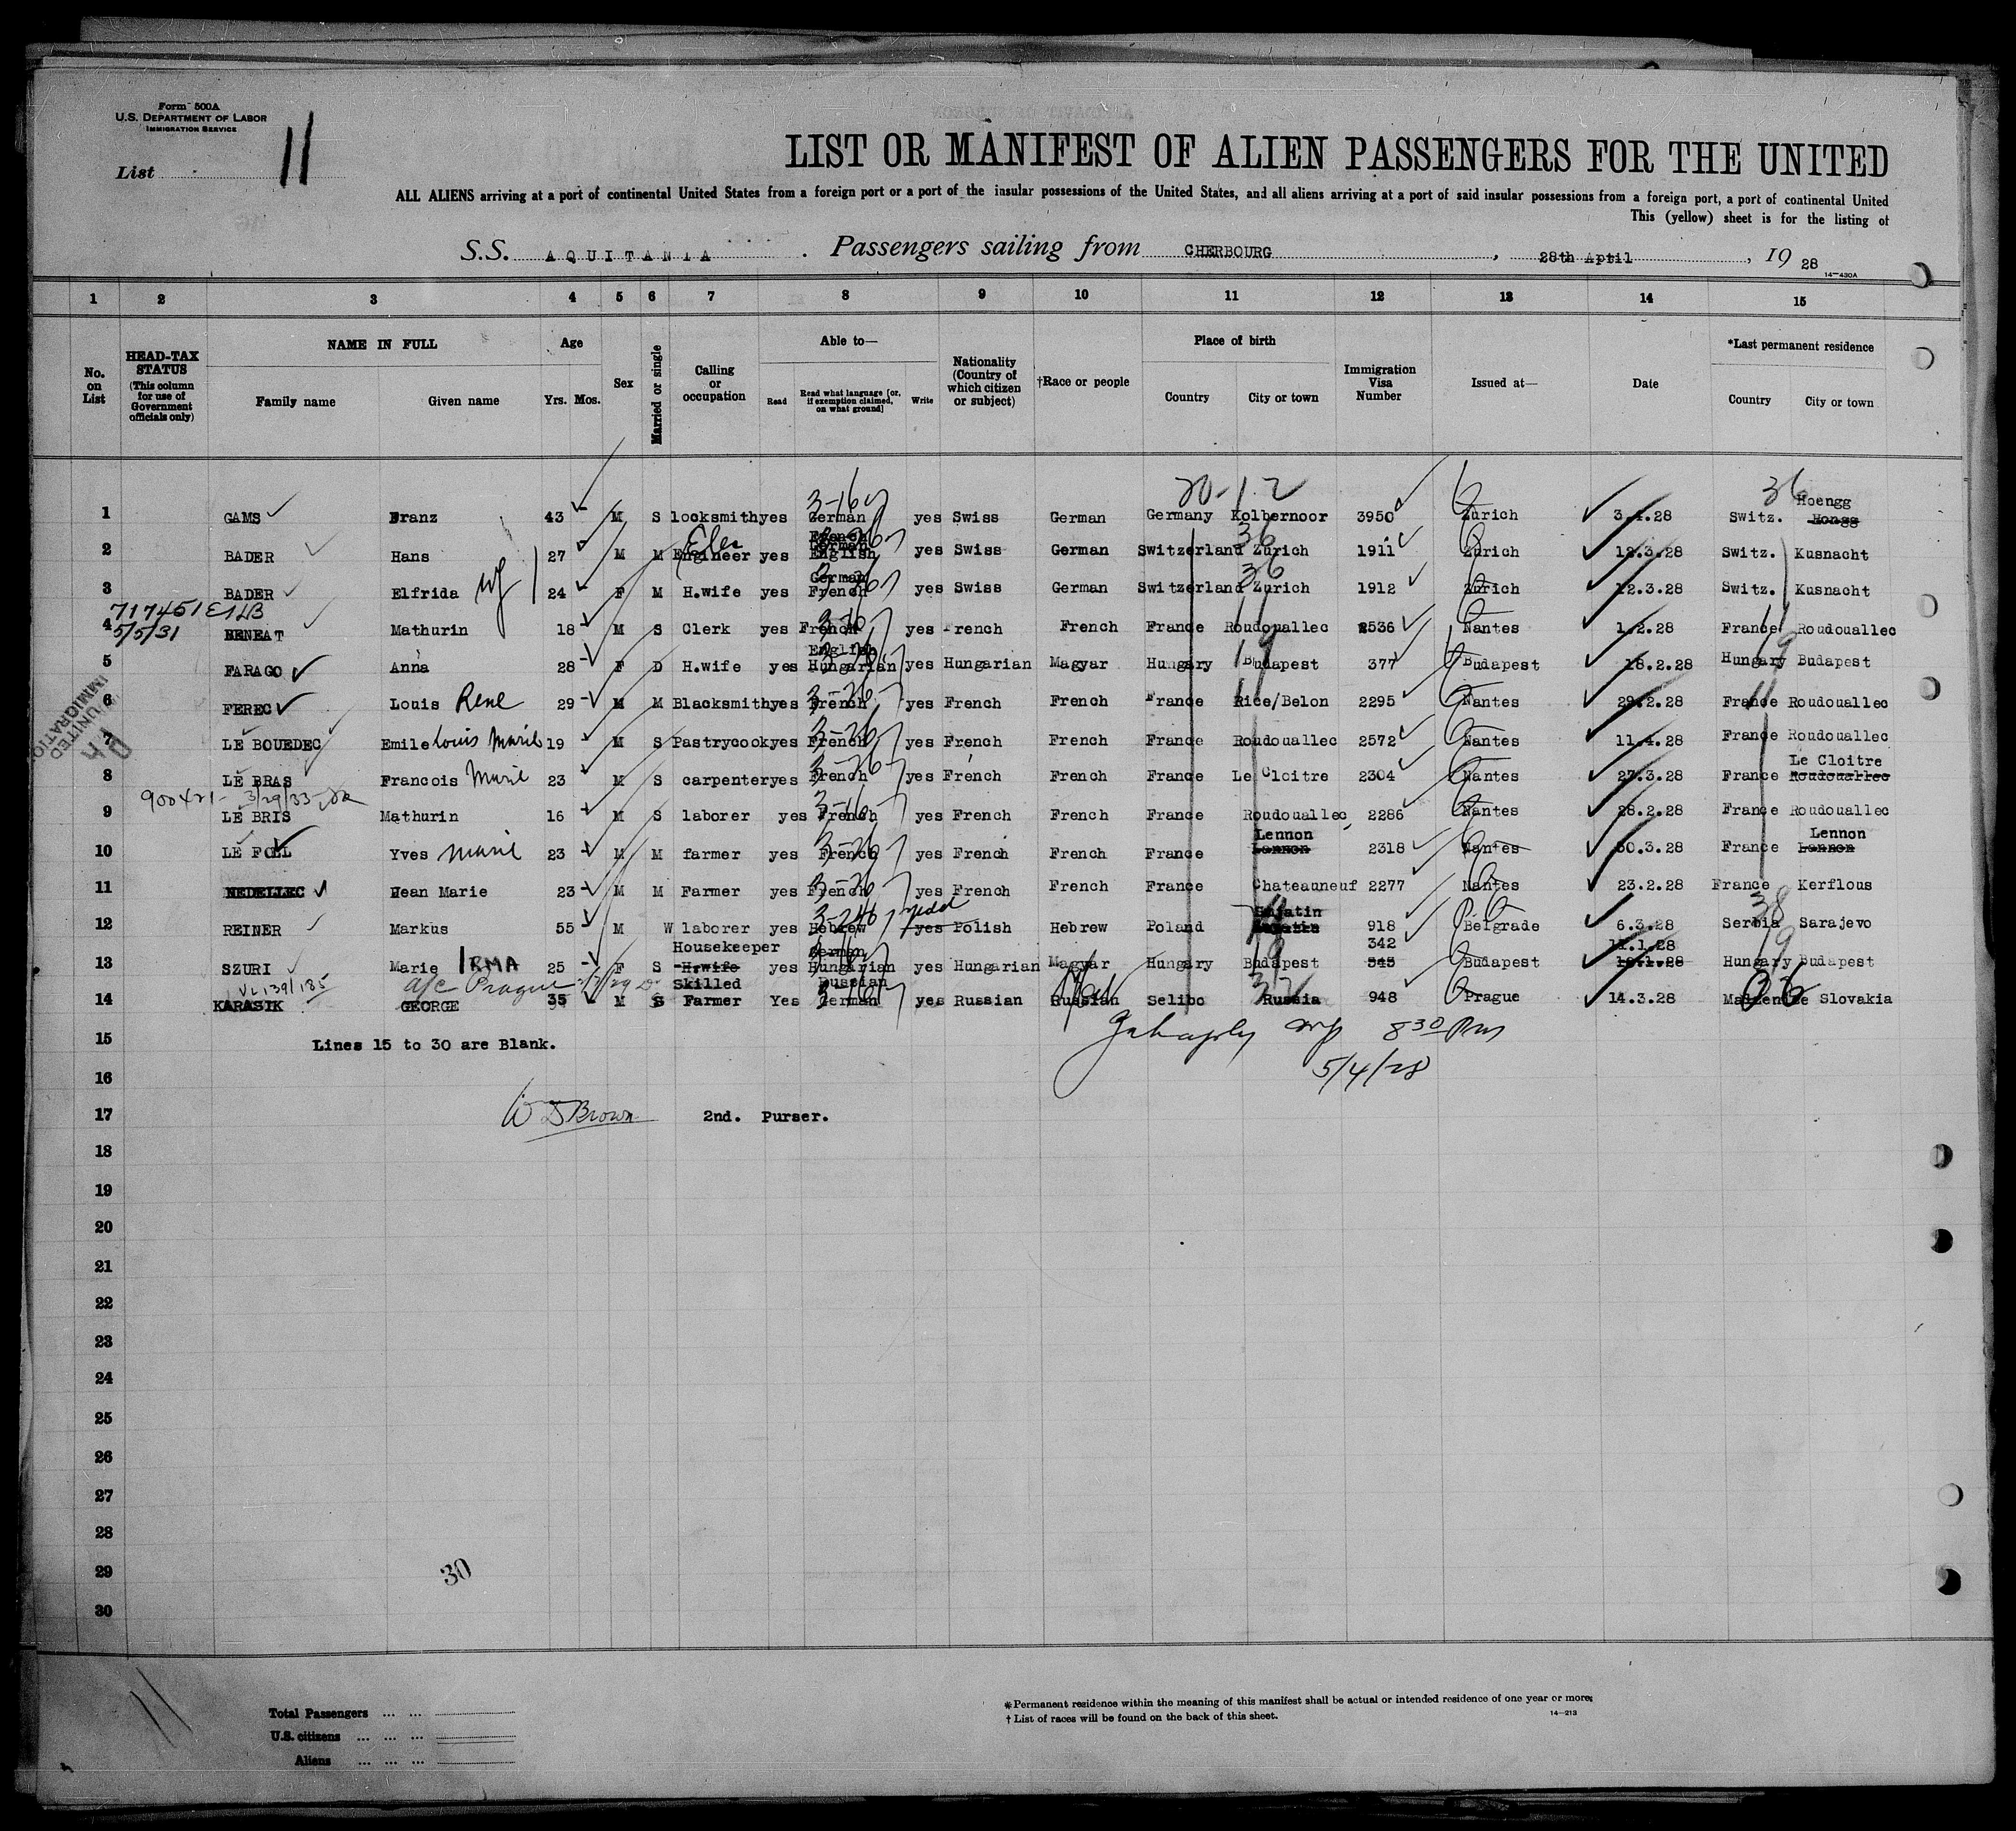 Form 500A
U.S. DEPARTMENT OF LABOR
IMMIGRATION SERVICE
List 11
LIST OR MANIFEST OF ALIEN PASSENGERS FOR THE UNITED
ALL ALIENS arriving at a port of continental United States from a foreign port or a port of the insular possessions of the United States, and all aliens arriving at a port of said insular possessions from a foreign port, a port of continental United
This (yellow) sheet is for the listing of
S.S. AQUITANIA . Passengers sailing from CHERBOURG , 28th April , 19 28
14-430A
1 2 3 4 5 6 7 8 9 10 11 12 13 14 15
No. on List
HEAD-TAX STATUS (This column for use of Government officials only)
NAME IN FULL Family name Given name
Age Yrs. Mos.
Sex
Married or single
Calling or occupation
Able to— Read Read what language [or, if exemption claimed, on what ground] Write
Nationality (Country of which citizen or subject)
†Race or people
Place of birth Country City or town
Immigration Visa Number
Issued at—
Date
*Last permanent residence Country City or town
3-16 20-12 36 Hoengg
1 GAMS Franz 43 M S locksmith yes German yes Swiss German Germany Kolbernoor 3950 Zurich 3.4.28 Switz. Hongg
Elec French German 36
2 BADER Hans 27 M M Engineer yes English yes Swiss German Switzerland Zurich 1911 Zurich 12.3.28 Switz. Kusnacht
German 36
3 BADER Elfrida wf 24 F M H.wife yes French yes Swiss German Switzerland Zurich 1912 Zurich 12.3.28 Switz. Kusnacht
717451 5/5/31
4 BENEAT Mathurin 18 M S Clerk yes French yes -rench French France Roudouallec 2536 Nantes 1.2.28 France Roudouallec
English 19 19
5 FARAGO Anna 28 F D H.wife yes Hungarian yes Hungarian Magyar Hungary Budapest 377 Budapest 18.2.28 Hungary Budapest
3-26 11 11
6 FEREC Louis Rene 29 M M Blacksmith yes French yes French French France Rice/Belon 2295 Nantes 29.2.28 France Roudouallec
3-26
7 LE BOUEDEC Emile Louis Marie 19 M S Pastrycook yes French yes French French France Roudouallec 2572 Nantes 11.4.28 France Roudouallec
3-26 Le Cloitre
8 LE BRAS Francois Marie 23 M S carpenter yes French yes French French France Le Cloitre 2304 Nantes 27.3.28 France Roudouallec
900421- 3/29/33 3-16
9 LE BRIS Mathurin 16 M S laborer yes French yes French French France Roudouallec 2286 Nantes 28.2.28 France Roudouallec
3-26 Lennon Lennon
10 LE FOLL Yves Marie 23 M M farmer yes French yes French French France Lannon 2318 Nantes 30.3.28 France Lannon
3-26
11 NEDELLEC Jean Marie 23 M M Farmer yes French yes French French France Chateauneuf 2277 Nantes 23.2.28 France Kerflous
3-246 Snjatin 38
12 REINER Markus 55 M W laborer yes Hebrew yes Polish Hebrew Poland 918 Belgrade 6.3.28 Serbia Sarajevo
Housekeeper German 19 342 11.1.28 19
13 SZURI Marie IRMA 25 F S H.wife yes Hungarian yes Hungarian Magyar Hungary Budapest 545 Budapest 10.1.28 Hungary Budapest
VL 139/185 a/c Prague Skilled Russian 32 36
14 KARASIK GEORGE 35 M S Farmer Yes German yes Russian Russian Selibo Russia 948 Prague 14.3.28 Slovakia
15 Lines 15 to 30 are Blank. 8 30 Pm
16 5/4/28
17 W D Brown 2nd. Purser.
18
19
20
21
22
23
24
25
26
27
28
29 30
30
11
Total Passengers ... ...
U.S. citizens ... ... ...
Aliens ... ... ...
*Permanent residence within the meaning of this manifest shall be actual or intended residence of one year or more.
† List of races will be found on the back of this sheet.
14-213